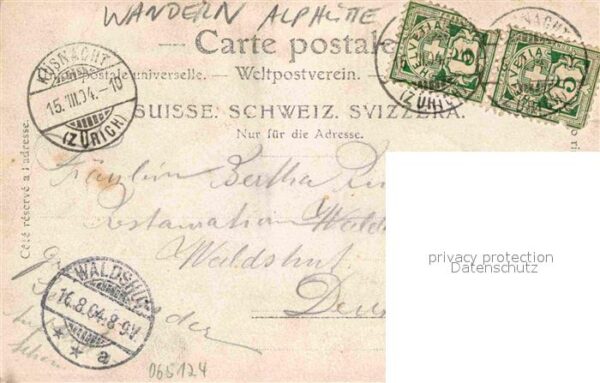 WANDERN ALPHÜTTE
Carte postale
postale universelle. — Weltpostverein.
SUISSE. SCHWEIZ. SVIZZERA.
Nur für die Adresse.
Côté réservé à l'adresse.
KÜSNACHT
15.III.04.-10
(ZÜRICH)
HELVETIA
5
HELVETIA
5
KÜSNACHT
(ZÜRICH)
Fräulein Bertha
Restauration Wald
Waldshut.
privacy protection
Datenschutz
WALDSHUT
16.8.04.8-9V.
* * a
065124